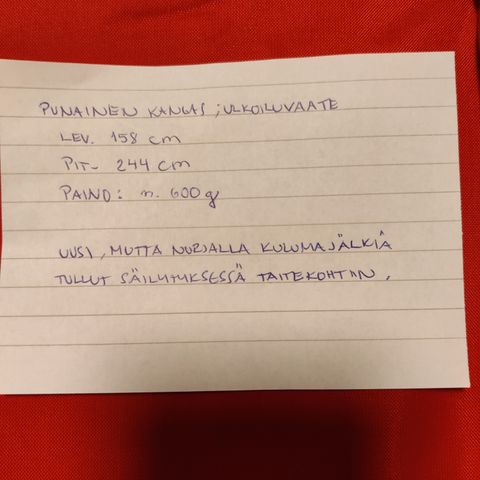 PUNAINEN KANGAS ; ULKOILUVAATE
LEV. 158 cm
PIT- 244 cm
PAINO: n. 600 g
UUSI, MUTTA NURJALLA KULUMAJÄLKIÄ
TULLUT SÄILYTYKSESSÄ TAITEKOHTIIN.